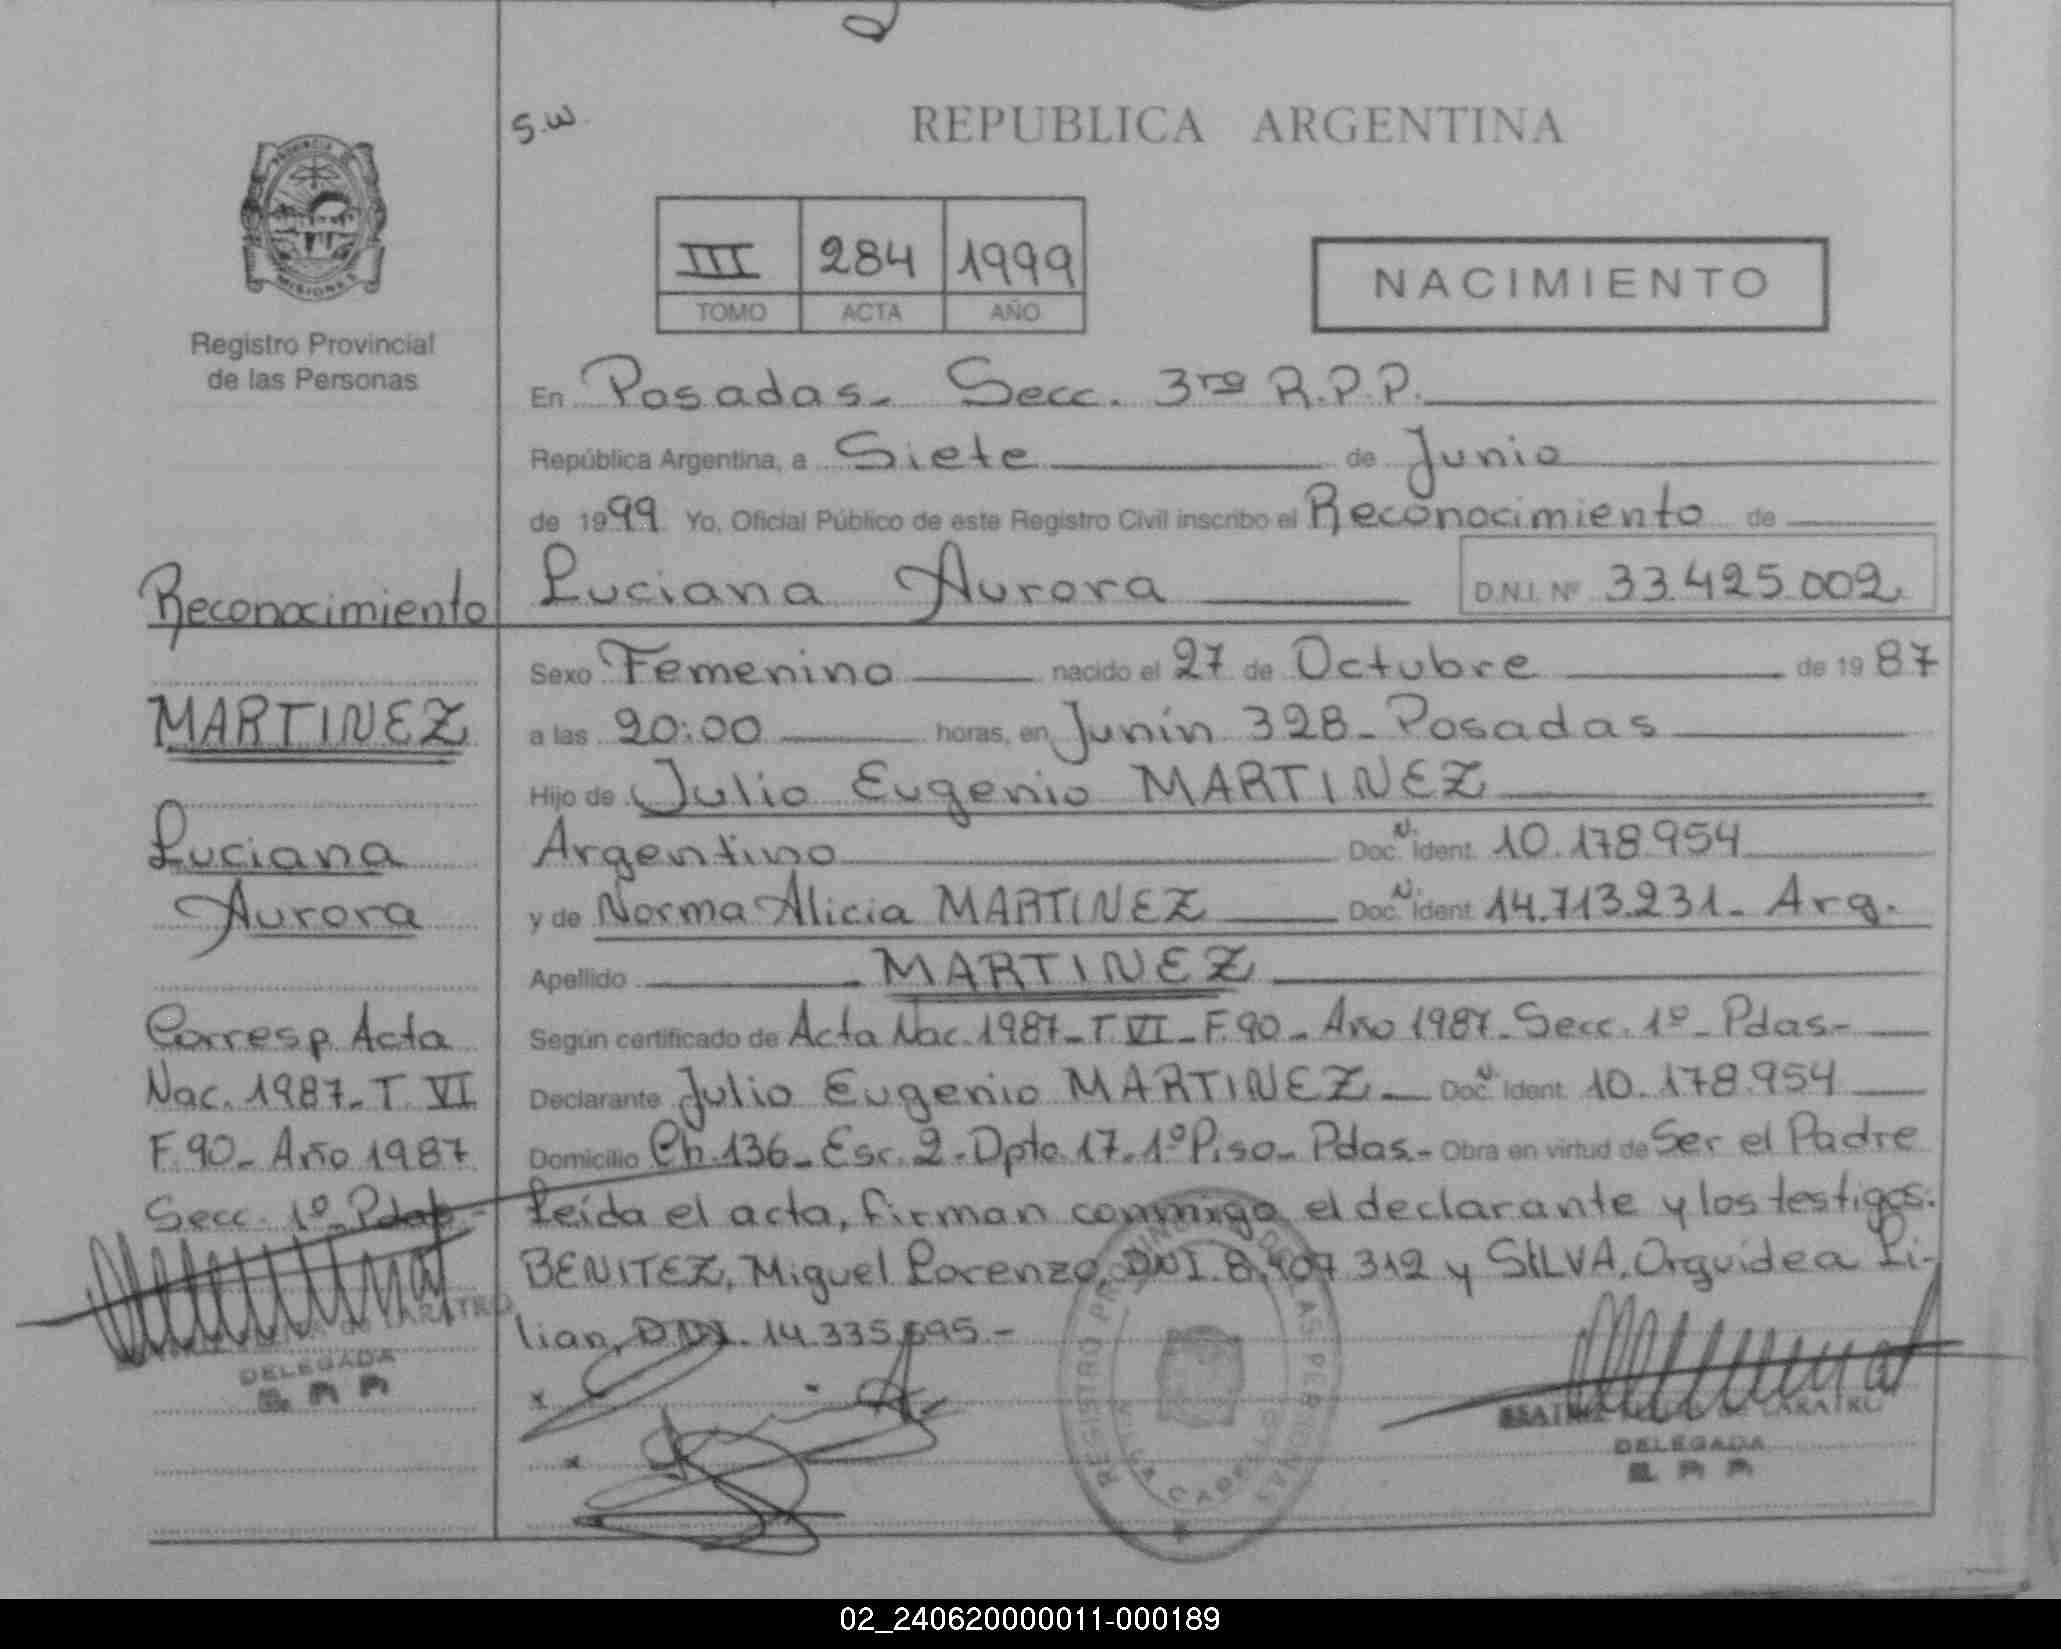 S.W
REPUBLICA ARGENTINA
PROVINCIA DE
MISIONES
III 284 1999
TOMO ACTA AÑO
NACIMIENTO
Registro Provincial
de las Personas
En Posadas- Secc. 3ra R.P.P.
República Argentina, a Siete de Junio
de 1999 Yo, Oficial Público de este Registro Civil inscribo el Reconocimiento de
Luciana Aurora D.N.I. Nº 33.425.002
Sexo Femenino nacido el 27 de Octubre de 1987
a las 20:00 horas, en Junín 328- Posadas
Hijo de Julio Eugenio MARTINEZ
Argentino Doc. N. Ident. 10.178.954
y de Norma Alicia MARTINEZ Doc. N. Ident. 14.713.231- Arg.
Apellido MARTINEZ
Según certificado de Acta Nac. 1987- T. VI- F.90- Año 1987- Secc. 1º- Pdas-
Declarante Julio Eugenio MARTINEZ- Doc. N. Ident. 10.178.954
Domicilio Ch. 136- Esc. 2- Dpto. 17- 1º Piso- Pdas.- Obra en virtud de Ser el Padre
Leída el acta, firman conmigo el declarante y los testigos:
BENITEZ, Miguel Lorenzo, DNI. 8.407.312 y SILVA, Orquídea Li-
lian, DNI. 14.335.695.-
Reconocimiento
MARTINEZ
Luciana
Aurora
Corresp. Acta
Nac. 1987- T. VI
F.90- Año 1987
Secc. 1º- Pdas.-
DELEGADA
REGISTRO PROVINCIAL DE LAS PERSONAS
DELEGADA
02_240620000011-000189